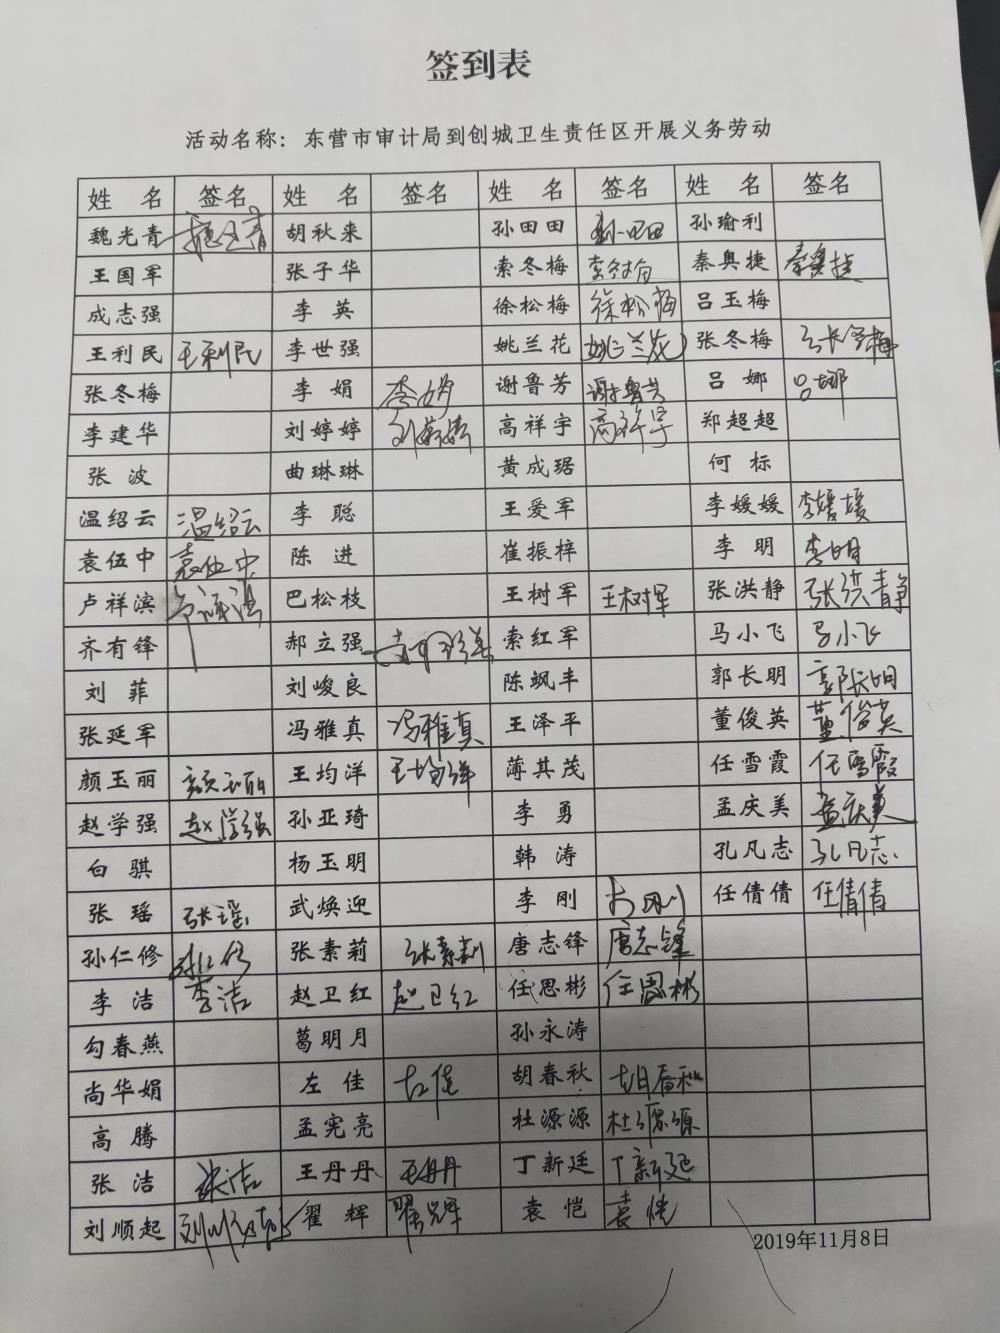 签到表
活动名称：东营市审计局到创城卫生责任区开展义务劳动
姓 名 签名 姓 名 签名 姓 名 签名 姓 名 签名
魏光青 魏光青 胡秋来 孙田田 孙田田 孙瑜利
王国军 张子华 索冬梅 索冬梅 秦奥捷 秦奥捷
成志强 李 英 徐松梅 徐松梅 吕玉梅
王利民 王利民 李世强 姚兰花 姚兰花 张冬梅 张冬梅
张冬梅 李 娟 李娟 谢鲁芳 谢鲁芳 吕 娜 吕娜
李建华 刘婷婷 刘婷婷 高祥宇 高祥宇 郑超超
张 波 曲琳琳 黄成琚 何 标
温绍云 温绍云 李 聪 王爱军 李媛媛 李媛媛
袁伍中 袁伍中 陈 进 崔振梓 李 明 李明
卢祥滨 卢祥滨 巴松枝 王树军 王树军 张洪静 张洪静
齐有锋 郝立强 索红军 马小飞 马小飞
刘 菲 刘峻良 陈飒丰 郭长明 郭长明
张延军 冯雅真 冯雅真 王泽平 董俊英 董俊英
颜玉丽 颜玉丽 王均洋 王均洋 薄其茂 任雪霞 任雪霞
赵学强 赵学强 孙亚琦 李 勇 孟庆美 孟庆美
白 骐 杨玉明 韩 涛 孔凡志 孔凡志
张 瑶 张瑶 武焕迎 李 刚 李刚 任倩倩 任倩倩
孙仁修 孙仁修 张素莉 张素莉 唐志锋 唐志锋
李 洁 李洁 赵卫红 赵卫红 任思彬 任思彬
勾春燕 葛明月 孙永涛
尚华娟 左 佳 左佳 胡春秋 胡春秋
高 腾 孟宪亮 杜源源 杜源源
张 洁 张洁 王丹丹 王丹丹 丁新廷 丁新廷
刘顺起 刘顺起 翟 辉 翟辉 袁 恺 袁恺
2019年11月8日